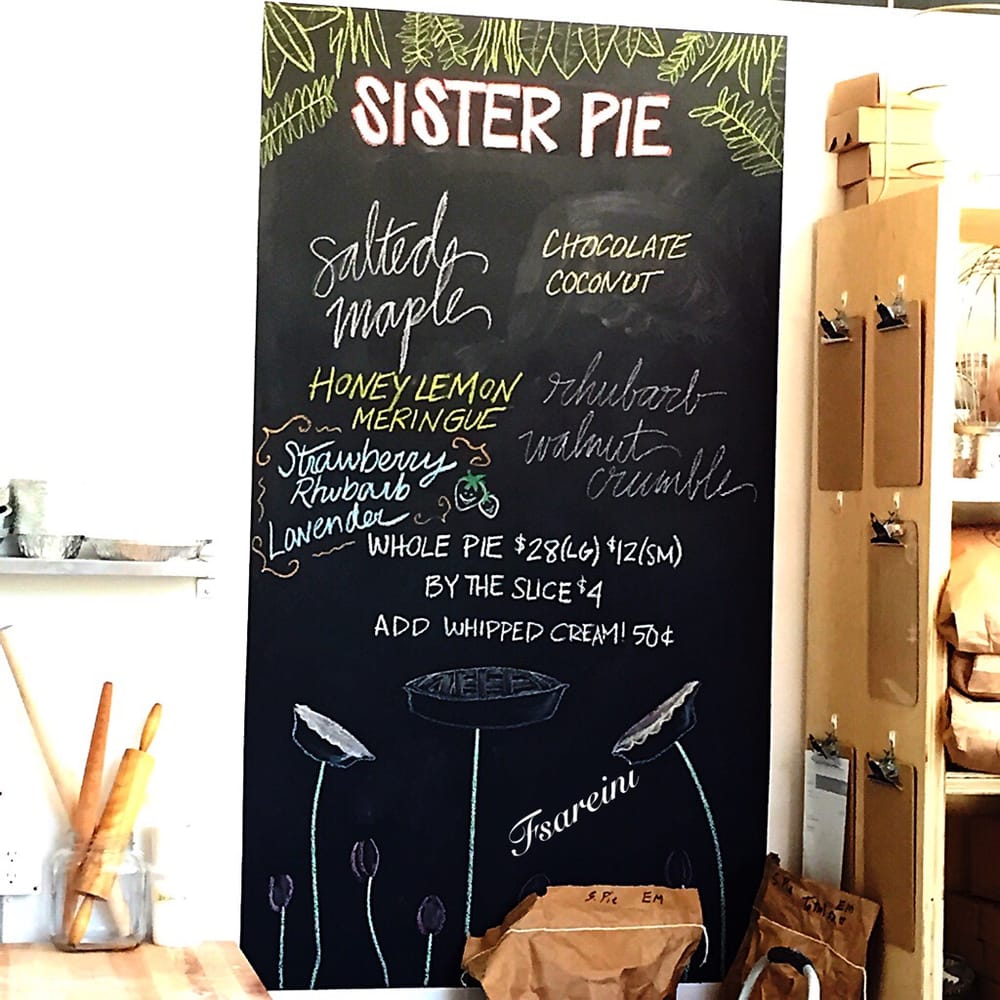 SISTER PIE
salted
maple
CHOCOLATE
COCONUT
HONEY LEMON
MERINGUE
rhubarb
walnut
crumble
Strawberry
Rhubarb
Lavender
WHOLE PIE $28(LG) $12(SM)
BY THE SLICE $4
ADD WHIPPED CREAM! 50¢
Fsareini
S. Pie EM
S. Pie EM